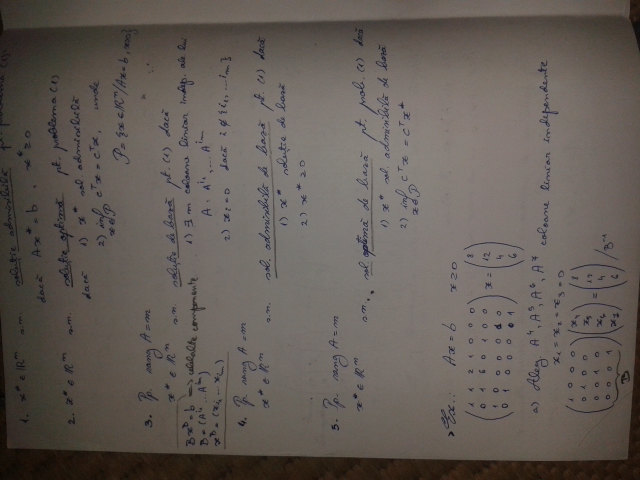 1. x* ∈ ℝⁿ s.n. soluție admisibilă pt. problema (1)
dacă Ax* = b, x* ≥ 0
2. x* ∈ ℝⁿ s.n. soluție optimă pt. problema (1)
dacă 1) x* sol. admisibilă
2) inf cᵀx = cᵀx*, unde
x∈P
P = {x ∈ ℝⁿ / Ax = b, x≥0}
3. Pp. rang A = m
x* ∈ ℝⁿ s.n. soluție de bază pt. (1) dacă
1) ∃ m coloane liniar indep. ale lui
A: Aⁱ¹, ... Aⁱᵐ
2) xᵢ = 0 dacă i ∉ {i₁, ... iₘ}
Bxᴮ = b => celelalte componente
B = (Aⁱ¹ ... Aⁱᵐ)
4. Pp. rang A = m
x* ∈ ℝⁿ s.n. sol. admisibilă de bază pt. (1) dacă
1) x* soluție de bază
2) x* ≥ 0
5. Pp. rang A = m
x* ∈ ℝⁿ s.n. sol. optimă de bază pt. prob. (1) dacă
1) x* sol. admisibilă de bază
2) inf cᵀx = cᵀx*
x∈P
Ex.: Ax = b x ≥ 0
a) Aleg A⁴, A⁵, A⁶, A⁷ coloane liniar independente
x₁ = x₂ = x₃ = 0
(1 0 0 0) (x₄) (8)
(0 1 0 0) (x₅) = (12) / B⁻¹
(0 0 1 0) (x₆) (4)
(0 0 0 1) (x₇) (6)
B